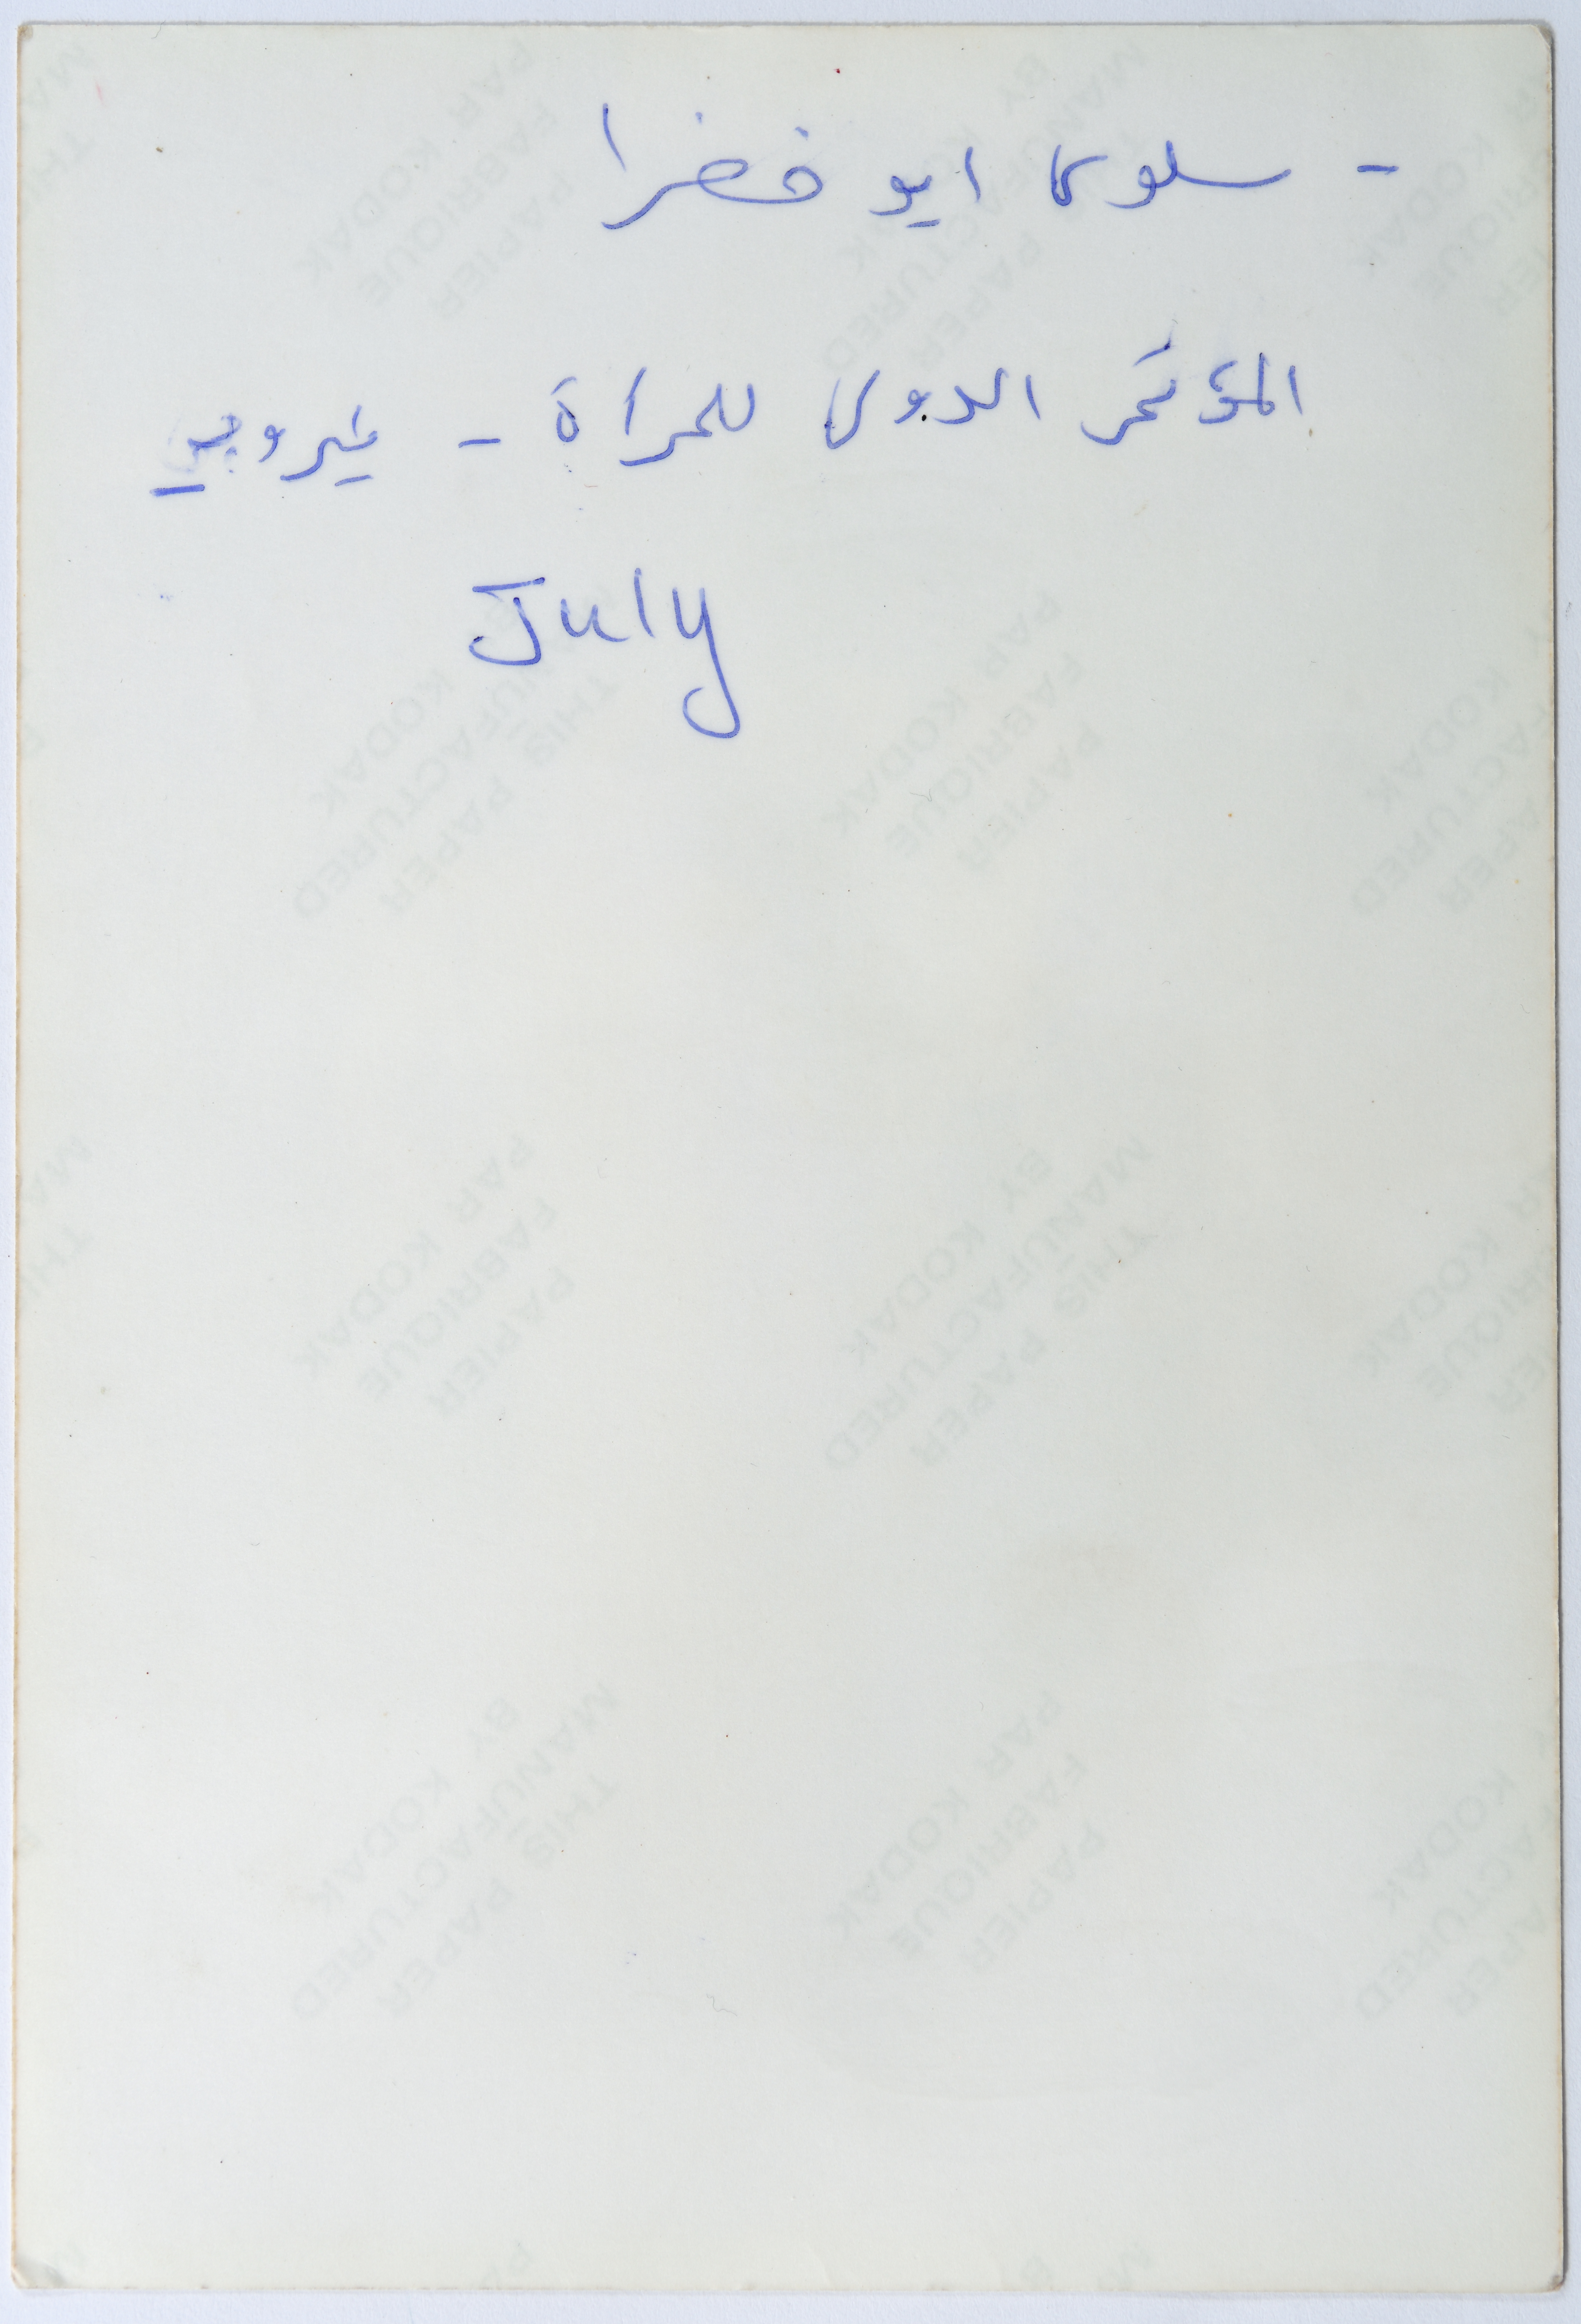 - سلوى ابو خضرا
المؤتمر الدولى للمرأة - نيروبي
July
THIS PAPER
MANUFACTURED
BY KODAK
PAPIER
FABRIQUE
PAR KODAK